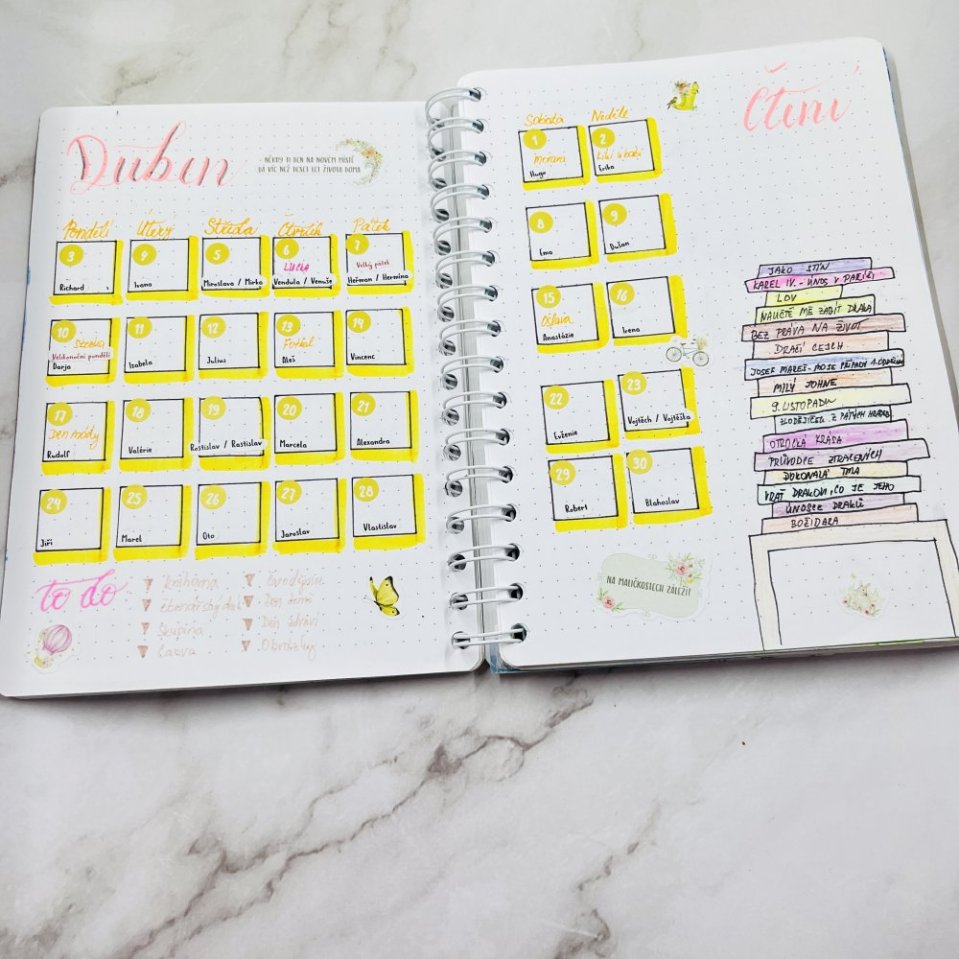 Duben
NĚKDY TI DEN NA NOVÉM MÍSTĚ
DÁ VÍC NEŽ DESET LET ŽIVOTA DOMA
Pondělí Úterý Středa Čtvrtek Pátek
3 Richard
9 Ivana
5 Miroslava / Mirka
6 LUCKA Vendula / Venuše
7 Velký pátek Heřman / Hermína
10 Velikonoční pondělí Darja
11 Izabela
12 Julius
13 Fotbal Aleš
14 Vincenc
17 Den mády Rudolf
18 Valérie
19 Rostislav / Rastislav
20 Marcela
21 Alexandra
24 Jiří
25 Marek
26 Oto
27 Jaroslav
28 Vlastislav
to do
knihovna
Skupina
Den země
Den zdraví
Obrázky
Čtení
Sobota Neděle
1 Morava Hugo
2 Erika
8 Ema
9 Dušan
15 Oslava Anastázie
16 Irena
22 Evženie
23 Vojtěch / Vojtěška
29 Robert
30 Blahoslav
JAKO STÍN
KAREL IV. - ÚNOS V PAŘÍŽI
LOV
NAUČTĚ MĚ ZABÍT DRAKA
BEZ PRÁVA NA ŽIVOT
DRAČÍ CEJCH
JOSEF MAREŠ - MOJE PŘÍPADY
MILÝ JOHNE
9. LISTOPADU
ZLODĚJÍČEK Z PÁTÝCH HRADEB
OTROCKÁ KRÁSA
PRŮVODCE ZTRACENÝCH
DOKONALÁ TMA
VRAŤ DRAKOVI, CO JE JEHO
ÚNOSCE DRAKŮ
BOŽIDARA
NA MALIČKOSTECH ZÁLEŽÍ!